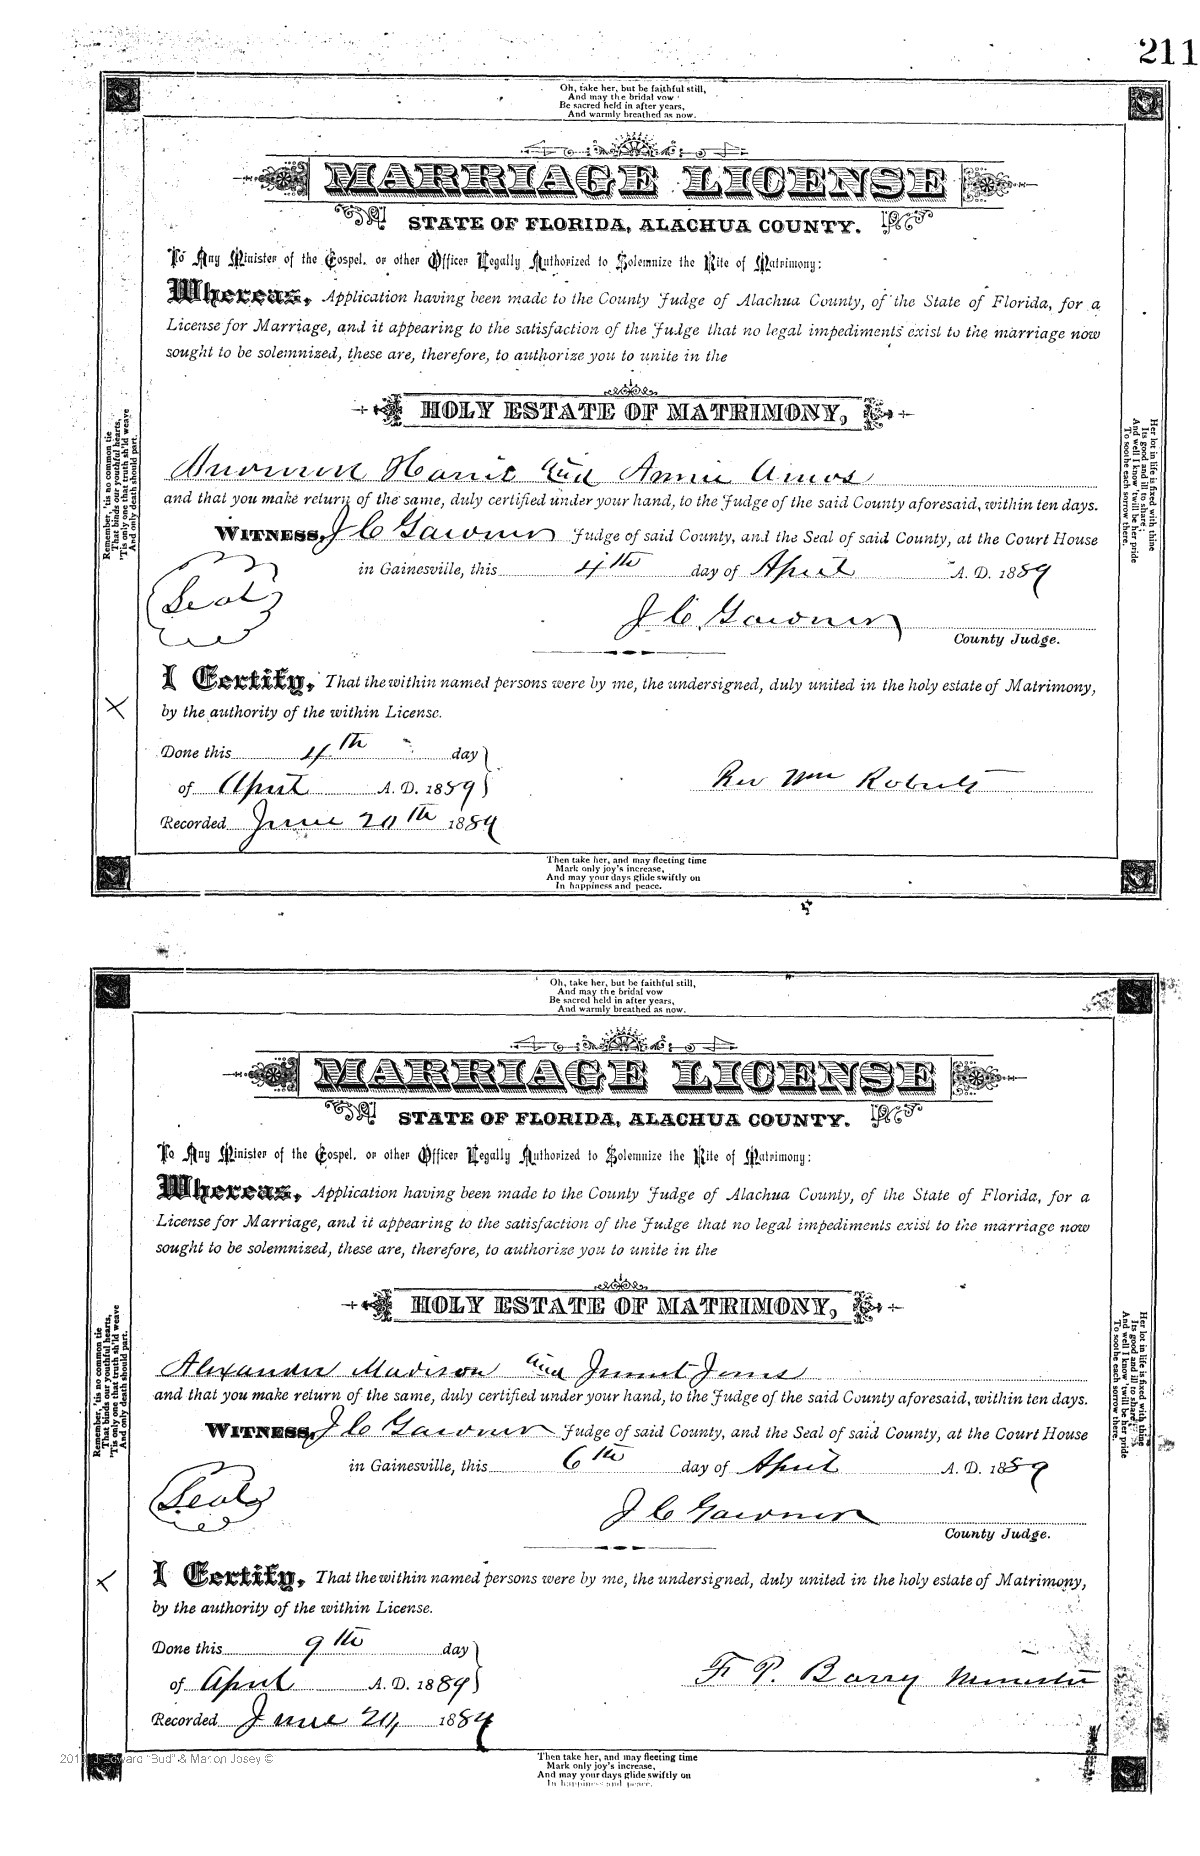 211
Oh, take her, but be faithful still,
And may the bridal vow
Be sacred held in after years,
And warmly breathed as now.
MARRIAGE LICENSE
STATE OF FLORIDA, ALACHUA COUNTY.
To Any Minister of the Gospel, or other Officer Legally Authorized to Solemnize the Rite of Matrimony:
Whereas, Application having been made to the County Judge of Alachua County, of the State of Florida, for a
License for Marriage, and it appearing to the satisfaction of the Judge that no legal impediments exist to the marriage now
sought to be solemnized, these are, therefore, to authorize you to unite in the
HOLY ESTATE OF MATRIMONY,
and Annie Amos
and that you make return of the same, duly certified under your hand, to the Judge of the said County aforesaid, within ten days.
WITNESS, J C Gardner Judge of said County, and the Seal of said County, at the Court House
in Gainesville, this 4th day of April A. D. 1889
Seal
J. C. Gardner
County Judge.
I Certify, That the within named persons were by me, the undersigned, duly united in the holy estate of Matrimony,
by the authority of the within License.
Done this 4th day
of April A. D. 1889
Rev Wm Roberts
Recorded June 20th 1889
Remember, 'tis no common tie
That binds our youthful hearts,
'Tis only one that truth sh'ld weave
And only death should part.
Her lot in life is fixed with thine
Its good and ill to share;
And well I know 'twill be her pride
To soothe each sorrow there.
Then take her, and may fleeting time
Mark only joy's increase,
And may your days glide swiftly on
In happiness and peace.
Oh, take her, but be faithful still,
And may the bridal vow
Be sacred held in after years,
And warmly breathed as now.
MARRIAGE LICENSE
STATE OF FLORIDA, ALACHUA COUNTY.
To Any Minister of the Gospel, or other Officer Legally Authorized to Solemnize the Rite of Matrimony:
Whereas, Application having been made to the County Judge of Alachua County, of the State of Florida, for a
License for Marriage, and it appearing to the satisfaction of the Judge that no legal impediments exist to the marriage now
sought to be solemnized, these are, therefore, to authorize you to unite in the
HOLY ESTATE OF MATRIMONY,
Alexander Madison and Jones
and that you make return of the same, duly certified under your hand, to the Judge of the said County aforesaid, within ten days.
WITNESS, J C Gardner Judge of said County, and the Seal of said County, at the Court House
in Gainesville, this 6th day of April A. D. 1889
Seal
J C Gardner
County Judge.
I Certify, That the within named persons were by me, the undersigned, duly united in the holy estate of Matrimony,
by the authority of the within License.
Done this 9th day
of April A. D. 1889
F. P. Barry Minister
Recorded June 20, 1889
Remember, 'tis no common tie
That binds our youthful hearts,
'Tis only one that truth sh'ld weave
And only death should part.
Her lot in life is fixed with thine
Its good and ill to share;
And well I know 'twill be her pride
To soothe each sorrow there.
Then take her, and may fleeting time
Mark only joy's increase,
And may your days glide swiftly on
In happiness and peace.
Edward "Bud" & Marion Josey ©